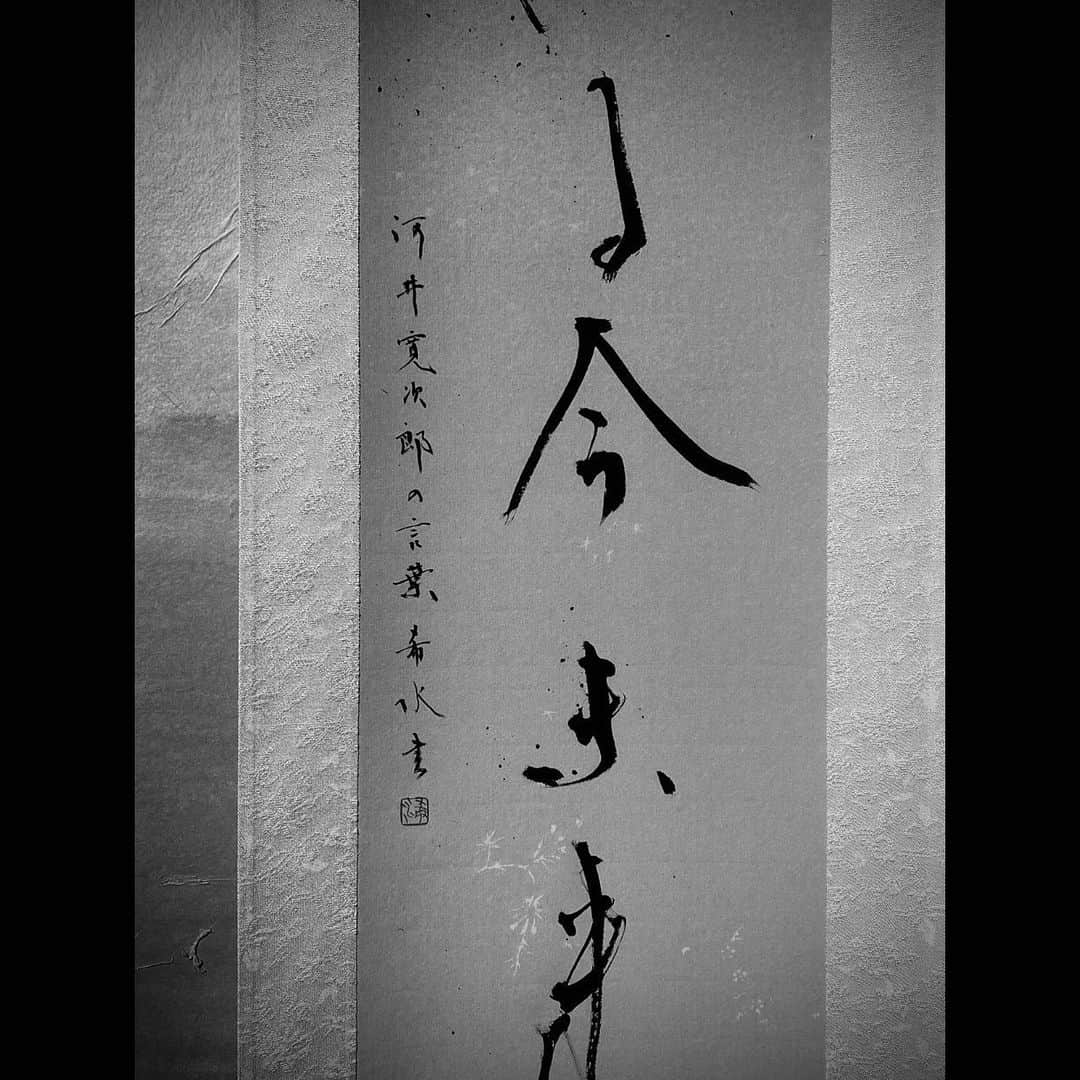 る今未来
河井寛次郎の言葉 希水書